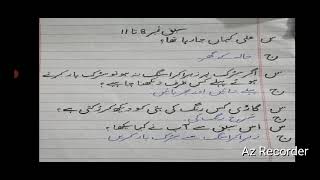 سبق نمبر 8 تا 11
س علی کہاں جا رہا تھا؟
ج خالہ کے گھر
س اگر سڑک پر زیبرا کراسنگ نہ ہو تو سڑک پار کرنے
سے پہلے کس طرف دیکھنا چاہیے؟
ج پہلے دائیں اور پھر بائیں
س گاڑی کس رنگ کی بتی کو دیکھ کر رکتی ہے؟
ج سرخ رنگ کی
س اس سبق سے آپ نے کیا سیکھا؟
ج زیبرا کراسنگ سے سڑک پار کریں
Az Recorder